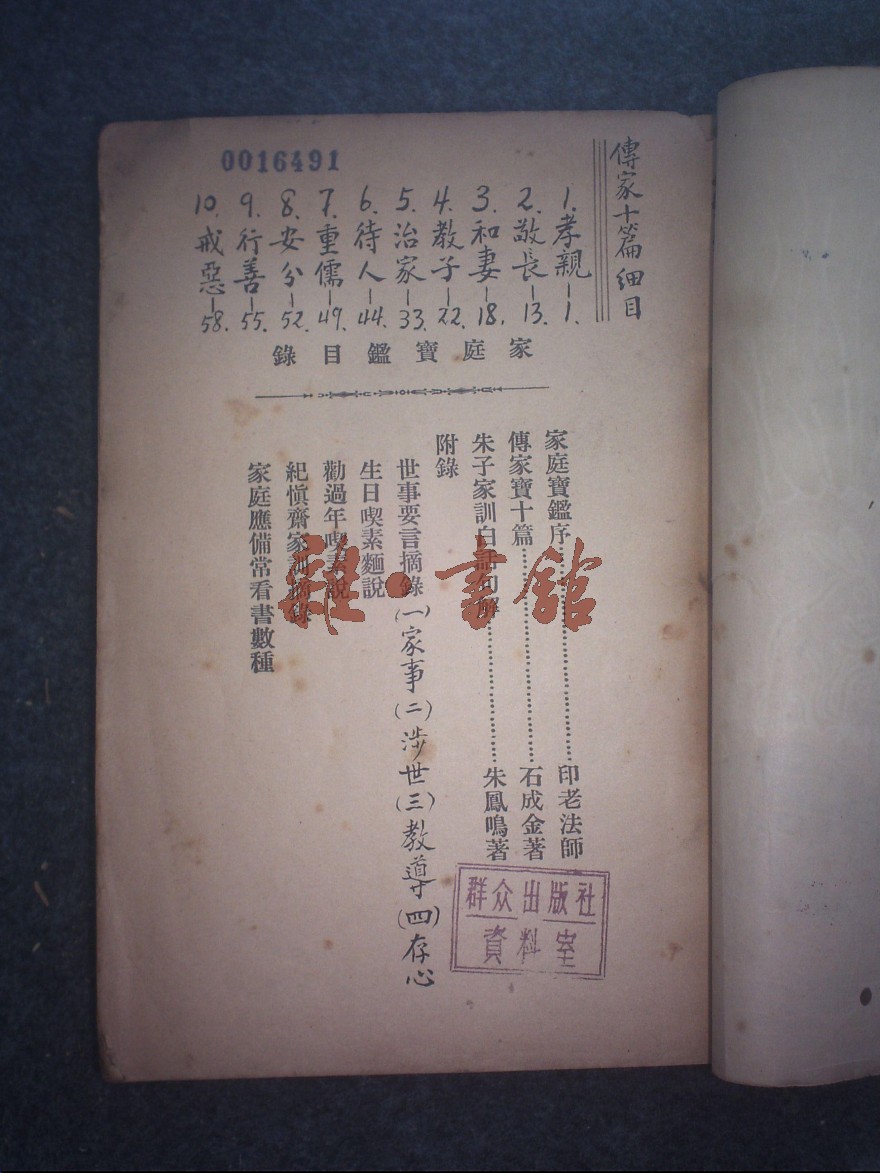 0016491
傳家十篇細目
1.孝親—1.
2.敬長—13.
3.和妻—18.
4.教子—22.
5.治家—33.
6.待人—44.
7.重儒—49.
8.安分—52.
9.行善—55.
10.戒惡—58.
家庭寶鑑目錄
家庭寶鑑序……印老法師
傳家寶十篇……石成金著
朱子家訓白話句解……朱鳳鳴著
附錄
世事要言摘錄(一)家事(二)涉世(三)教導(四)存心
生日喫素麵說
勸過年喫素說
紀愼齋家訓摘錄
家庭應備常看書數種
雜·書館
群众出版社
資料室